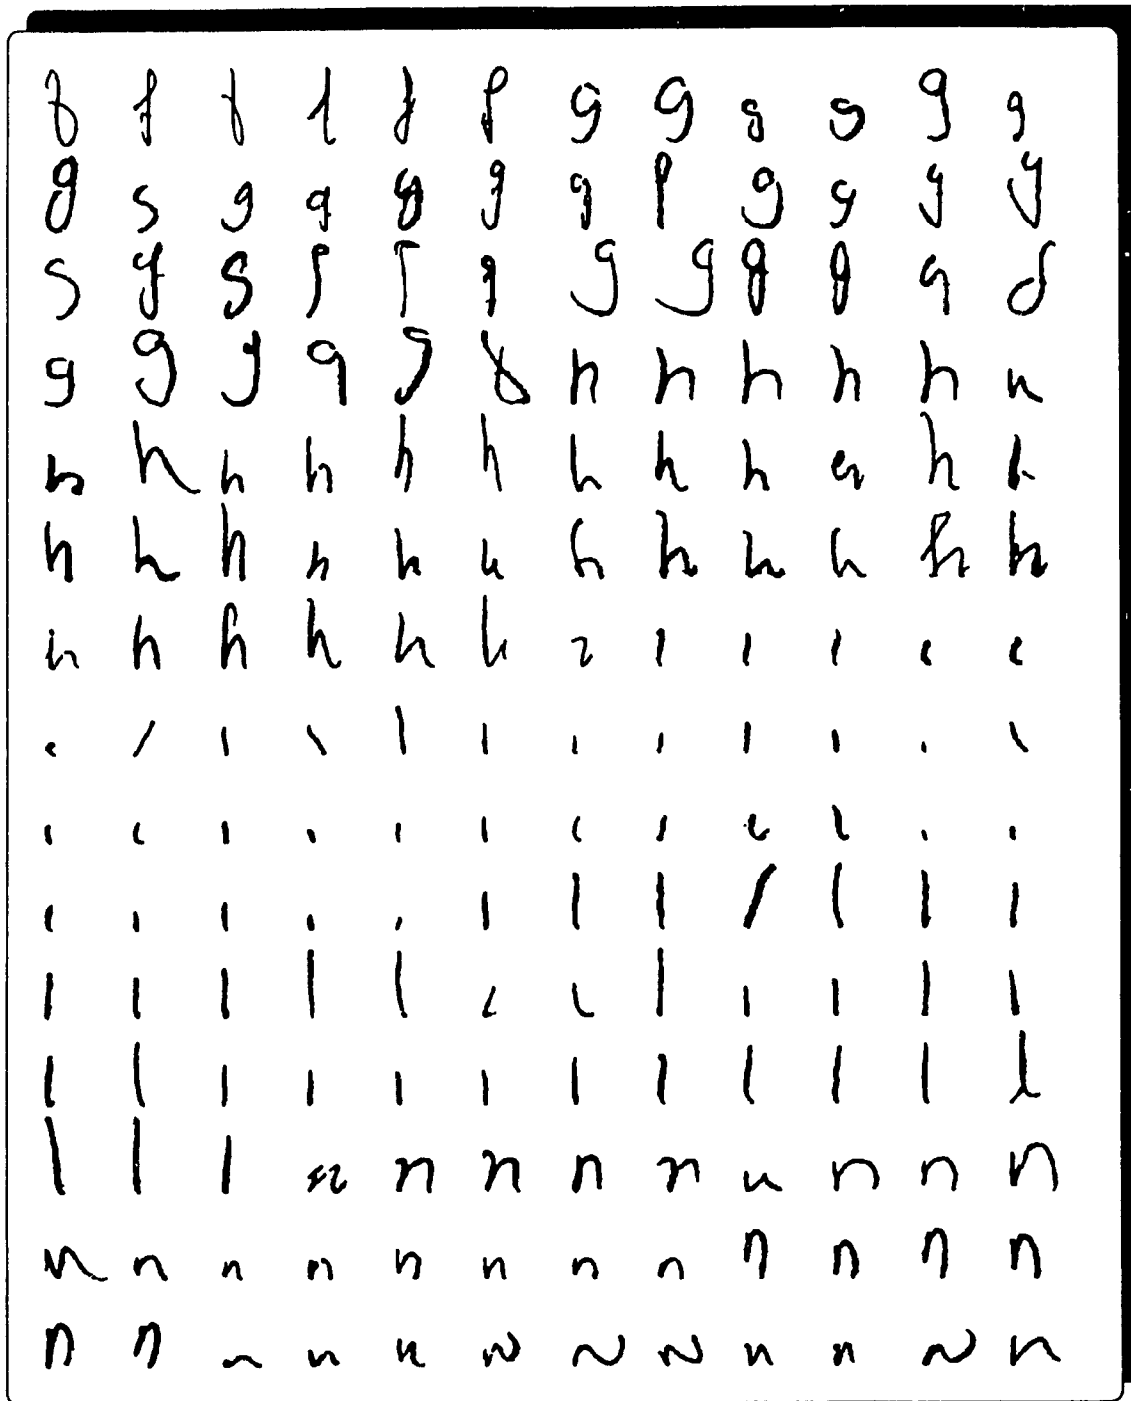 f f f f f f g g g g g g
g g g g g g g g g g g g
g g g g g g g g g g g g
g g g g g g h h h h h h
h h h h h h h h h h h h
h h h h h h h h h h h h
h h h h h h i i i i i i
i i i i i i i i i i i i
i i i i i i i i i i i i
i i i i i l l l l l l l
l l l l l l l l l l l l
l l l l l l l l l l l l
l l l n n n n n n n n n
n n n n n n n n n n n n
n n n n n n n n n n n n